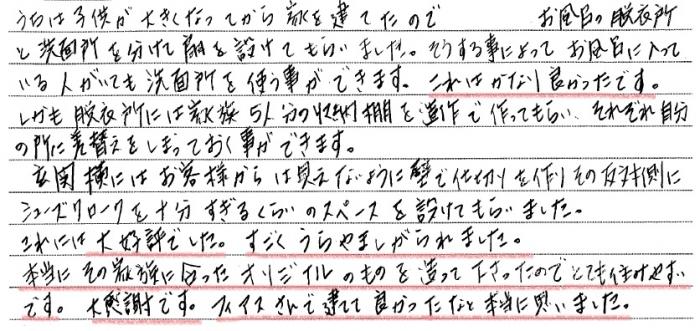 うちは子供が大きくなってから家を建てたので お風呂の脱衣所
と洗面所を分けて扉を設けてもらいました。そうする事によってお風呂に入って
いる人がいても洗面所を使う事ができます。これはかなり良かったです。
しかも脱衣所には家族5人分の収納棚を造作で作ってもらい、それぞれ自分
の所に着替えをしまっておく事ができます。
玄関横にはお客様からは見えないように壁で仕切りを作りその反対側に
シューズクロークを十分すぎるくらいのスペースを設けてもらいました。
これには大好評でした。すごくうらやましがられました。
本当にその家族に合ったオリジナルのものを造って下さったのでとても住みやすい
です。大感謝です。フィアスさんで建てて良かったなと本当に思いました。